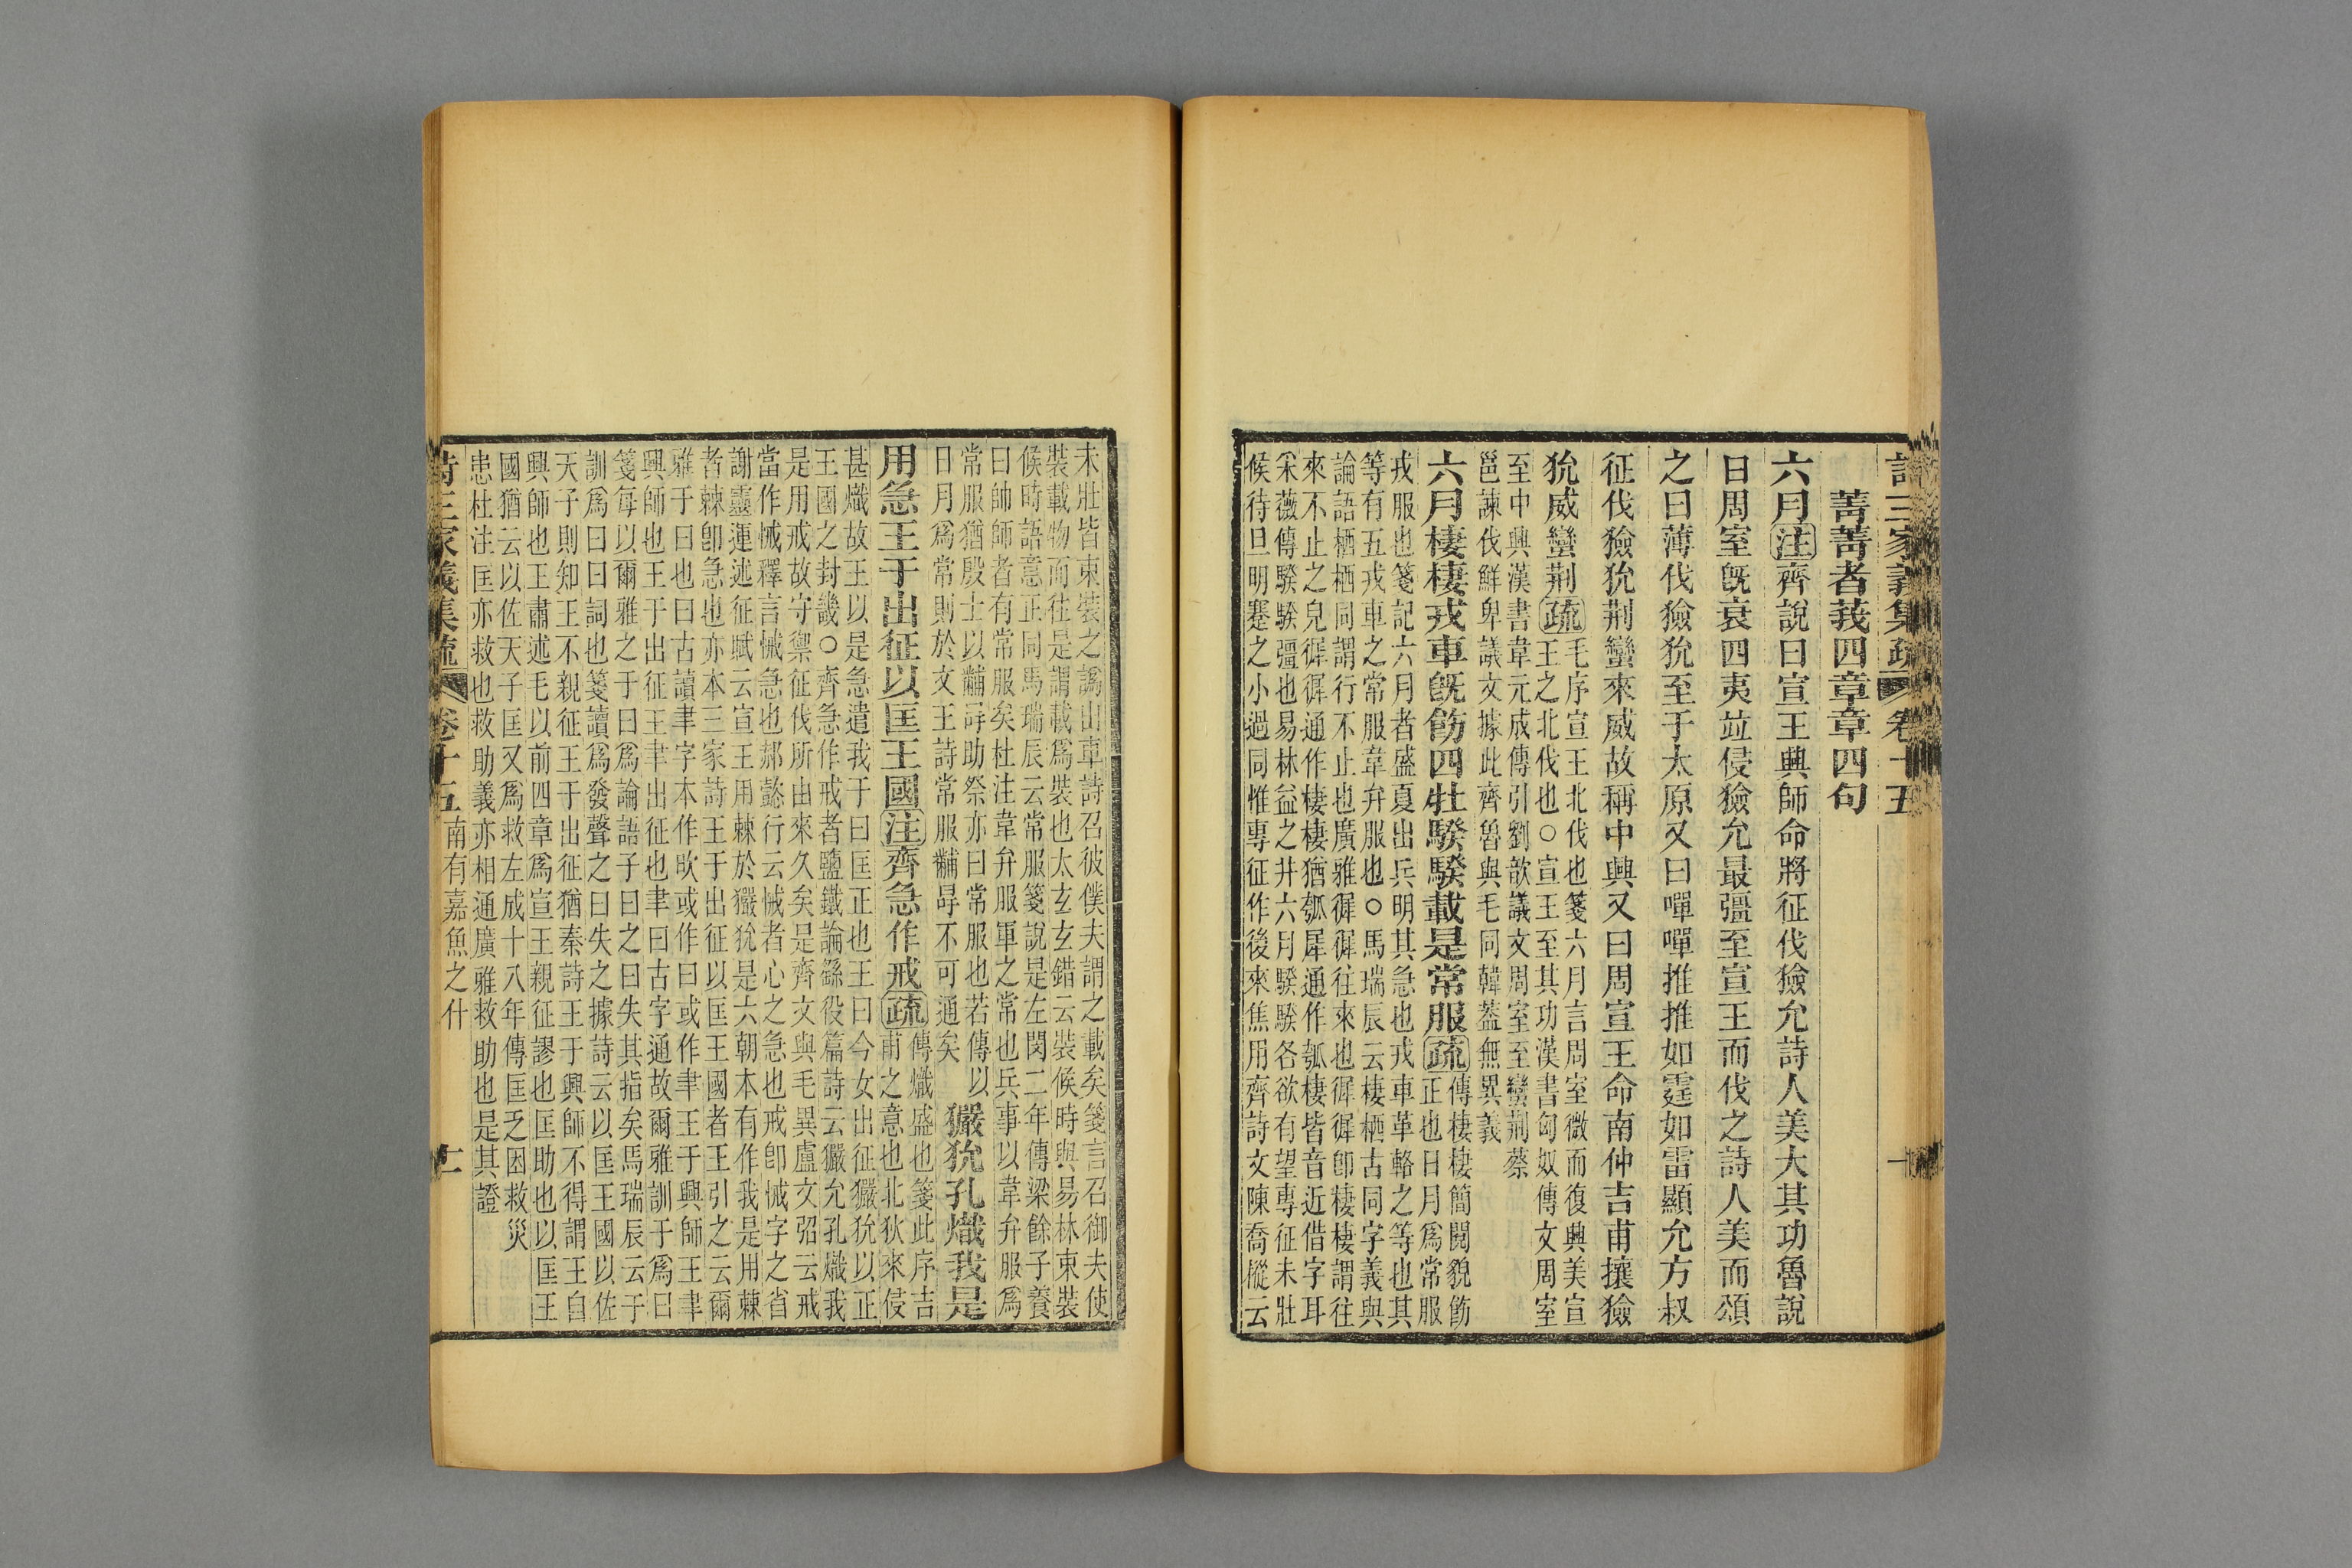 詩三家義集疏 卷十五
菁菁者莪四章章四句
六月注齊說曰宣王興師命將征伐獫允詩人美大其功魯說
曰周室旣衰四夷竝侵獫允最彊至宣王而伐之詩人美而頌
之曰薄伐獫狁至于太原又曰嘽嘽推推如霆如雷顯允方叔
征伐獫狁荆蠻來威故稱中興又曰周宣王命南仲吉甫攘獫
狁威蠻荆疏
毛序宣王北伐也箋六月言周室微而復興美宣
王之北伐也○宣王至其功漢書匈奴傳文周室
至中興漢書韋元成傳引劉歆議文周室至蠻荆蔡
邕諫伐鮮卑議文據此齊魯與毛同韓蓋無異義
六月棲棲戎車旣飭四牡騤騤載是常服疏
傳棲棲簡閱貌飭
正也日月爲常服
戎服也箋記六月者盛夏出兵明其急也戎車革輅之等也其
等有五戎車之常服韋弁服也○馬瑞辰云棲栖古同字義與
論語栖栖同謂行不止也廣雅徲徲往來也徲徲卽棲棲謂往
來不止之皃徲徲通作棲棲猶瓠犀通作瓠棲皆音近借字耳
采薇傳騤騤彊也易林益之井六月騤騤各欲有望專征未壯
候待旦明蹇之小過同惟專征作後來焦用齊詩文陳喬樅云
未壯皆束裝之譌山車詩召彼僕夫謂之載矣箋言召御夫使
裝載物而往是謂載爲裝也太玄玄錯云裝候時與易林束裝
候時語意正同馬瑞辰云常服箋說是左閔二年傳梁餘子養
曰帥師者有常服矣杜注韋弁服軍之常也兵事以韋弁服爲
常服猶殷士以黼冔助祭亦曰常服也若傳以
日月爲常則於文王詩常服黼冔不可通矣
玁狁孔熾我是
用急王于出征以匡王國注齊急作戒疏
傳熾盛也箋此序吉
甫之意也北狄來侵
甚熾故王以是急遣我于曰匡正也王曰今女出征玁狁以正
王國之封畿○齊急作戒者鹽鐵論繇役篇詩云玁允孔熾我
是用戒故守禦征伐所由來久矣是齊文與毛異盧文弨云戒
當作悈釋言悈急也郝懿行云悈者心之急也戒卽悈字之省
謝靈運述征賦云宣王用棘於玁狁是六朝本有作我是用棘
者棘卽急也亦本三家詩王于出征以匡王國者王引之云爾
雅于曰也曰古讀聿字本作欥或作曰或作聿王于興師王聿
興師也王于出征王聿出征也聿曰古字通故爾雅訓于爲曰
箋每以爾雅之于曰爲論語子曰之曰失其指矣馬瑞辰云于
訓爲曰曰詞也箋讀爲發聲之曰失之據詩云以匡王國以佐
天子則知王不親征王于出征猶秦詩王于興師不得謂王自
興師也王肅述毛以前四章爲宣王親征謬也匡助也以匡王
國猶云以佐天子匡又爲救左成十八年傳匡乏困救災
患杜注匡亦救也救助義亦相通廣雅救助也是其證
詩三家義集疏 卷十五 南有嘉魚之什 十一